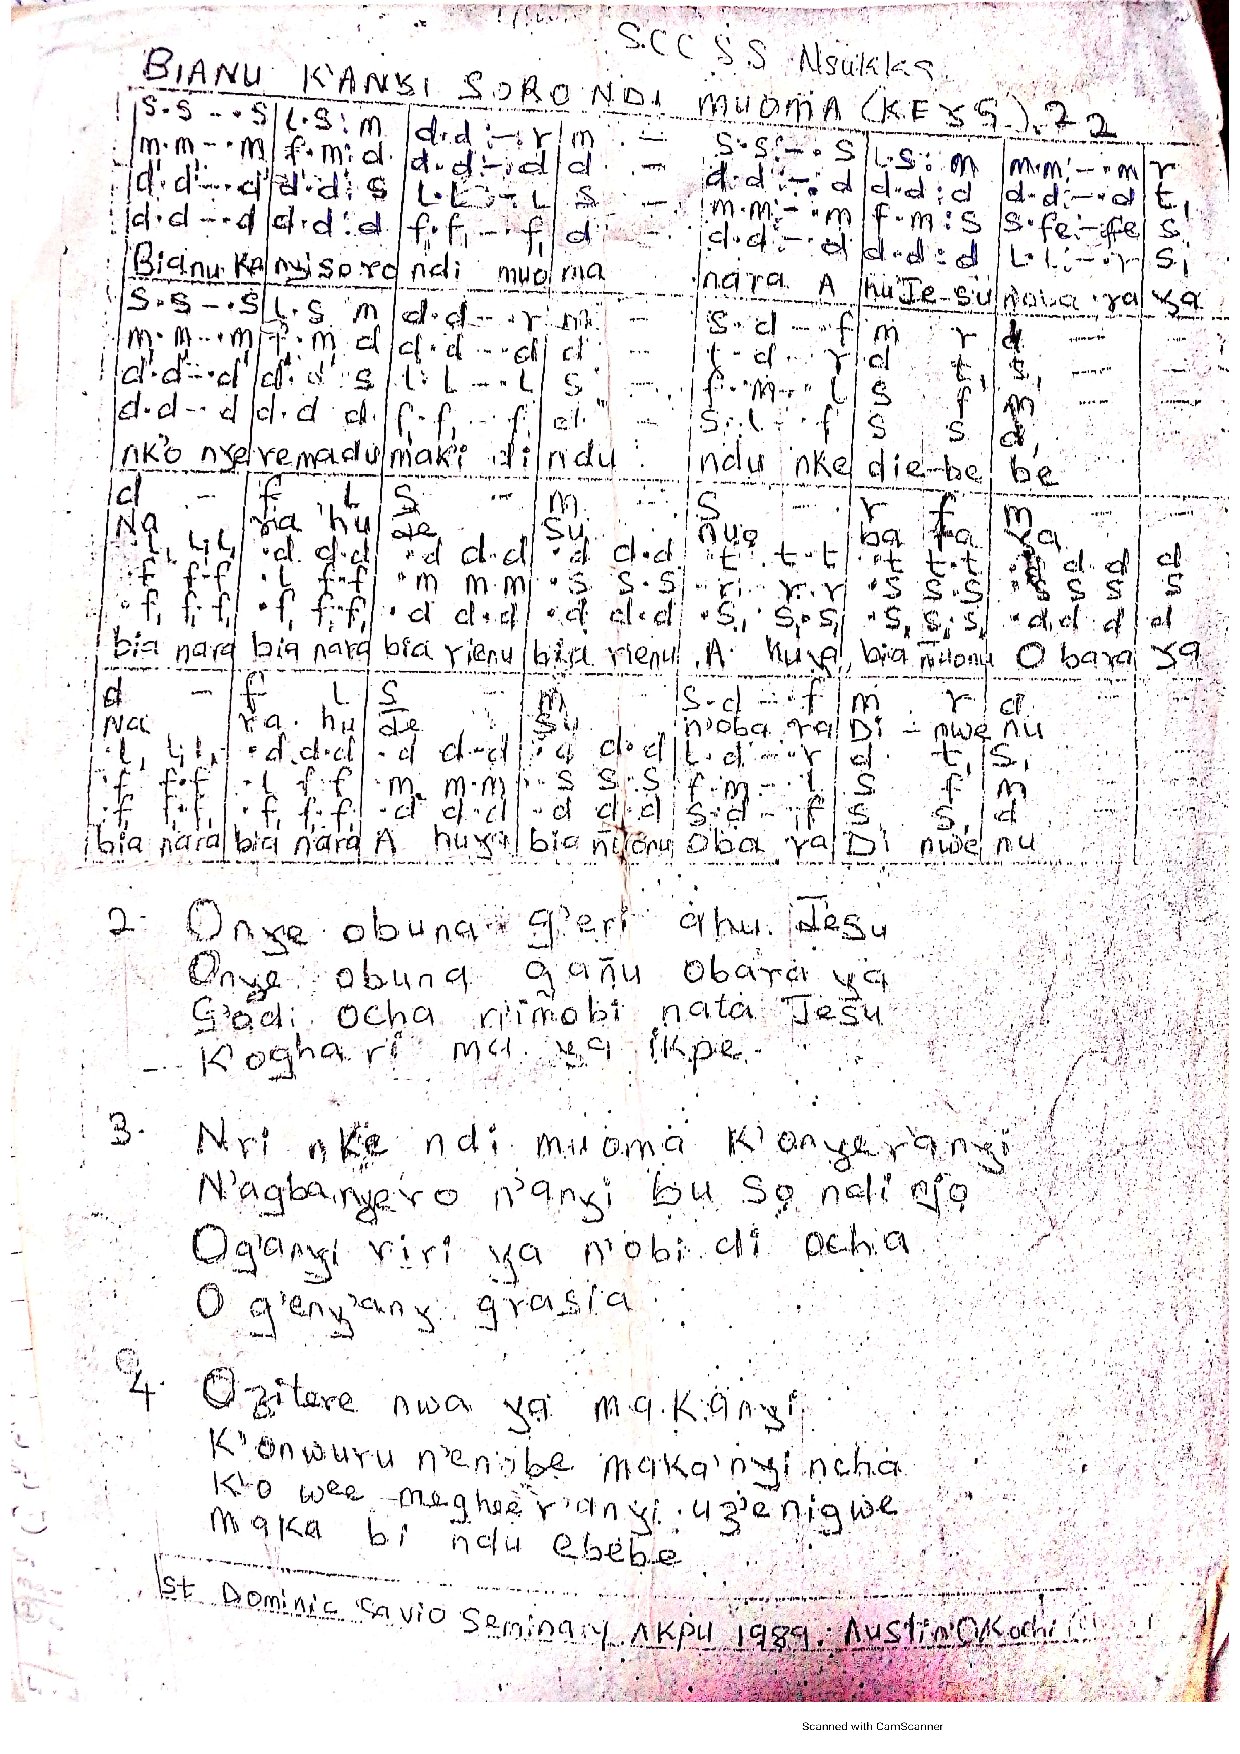 SCCSS Nsukka
BIANU K'ANYI SORO NDI MUOMA (KEY G.) 22
s.s -.s | L.s : m | d.d :-. r | m : - s.s :-. s | L.s : m | m.m :-. m | r
m.m -.m | f.m : d | d.d :-. d | d : - d.d :-. d | d.d : d | d.d :-. d | t,
d'.d' -.d' | d'.d' : s | L.L :-. L | s : - m.m :-. m | f.m : s | s.fe :-. fe | s
d.d -.d | d.d : d | f,.f, -. f, | d : - d.d :-. d | d.d : d | L.L :-. r | s,
Bianu.ka nyi soro ndi muo ma nara A hu Je-su noba ra ya
s.s -.s | L.s m | d.d -. r | m - s.d -. f | m r | d -
m.m -.m | f.m d | d.d -. d | d - t.d -. r | d t, | s, -
d'.d' -.d' | d'.d' : s | L.L -. L | s - f.m -. l | s f | m -
d.d -. d | d.d d | f,.f, -. f, | d - s.l -. f | s s | d, -
nk'o nyere madu maka'i di ndu ndu nke die-be be
d - | f L | s - | m - s - | r f | m -
Na ra hu Je su nuo ba ra ya
L, L,L, | .d d.d | .d d.d | .d d.d | .t t.t | .t t.t | .d d.d d
.f f.f | .L f.f | .m m.m | .s s.s | .r r.r | .s s.s | .s s s s
.f, f,.f, | .f, f,.f, | .d d.d | .d d.d | .s, s,.s, | .s, s,.s, | .d,d d d
bia nara bia nara bia rienu bia rienu A huya, bia ñuonu O bara ya
d - | f L | s - | m s.d -. f | m r | d
Na ra hu Je su n'oba ra Di - nwe nu
.L, L,L, | .d.d.d | .d d.d | .d d.d | L.d -. r | d t, | s,
.f f.f | .L f f | .m m.m | .s s.s | f.m -. l | s f | m
.f, f,.f, | .f, f.f, | .d d.d | .d d.d | s.d -. f | s s, | d
bia nara bia nara A huya bia ñuonu Oba ra Di nwe nu
2. Onye obuna g'eri ahu Jesu
Onye obuna gañu obara ya
G'adi ocha n'imobi nata Jesu
K'oghari ma ya ikpe.
3. Nri nke ndi muoma K'onyer'anyi
N'agbanyero n'anyi bu so ndi njo
Og'anyi riri ya n'obi di ocha
O g'eny'any grasia
4. Ozitere nwa ya maka anyi
K'onwuru n'enobe maka'nyi ncha
K'o wee megheer'anyi uz'enigwe
maka bi ndu ebebe
St Dominic Savio Seminary AKPU 1989. Austin Okochi
Scanned with CamScanner